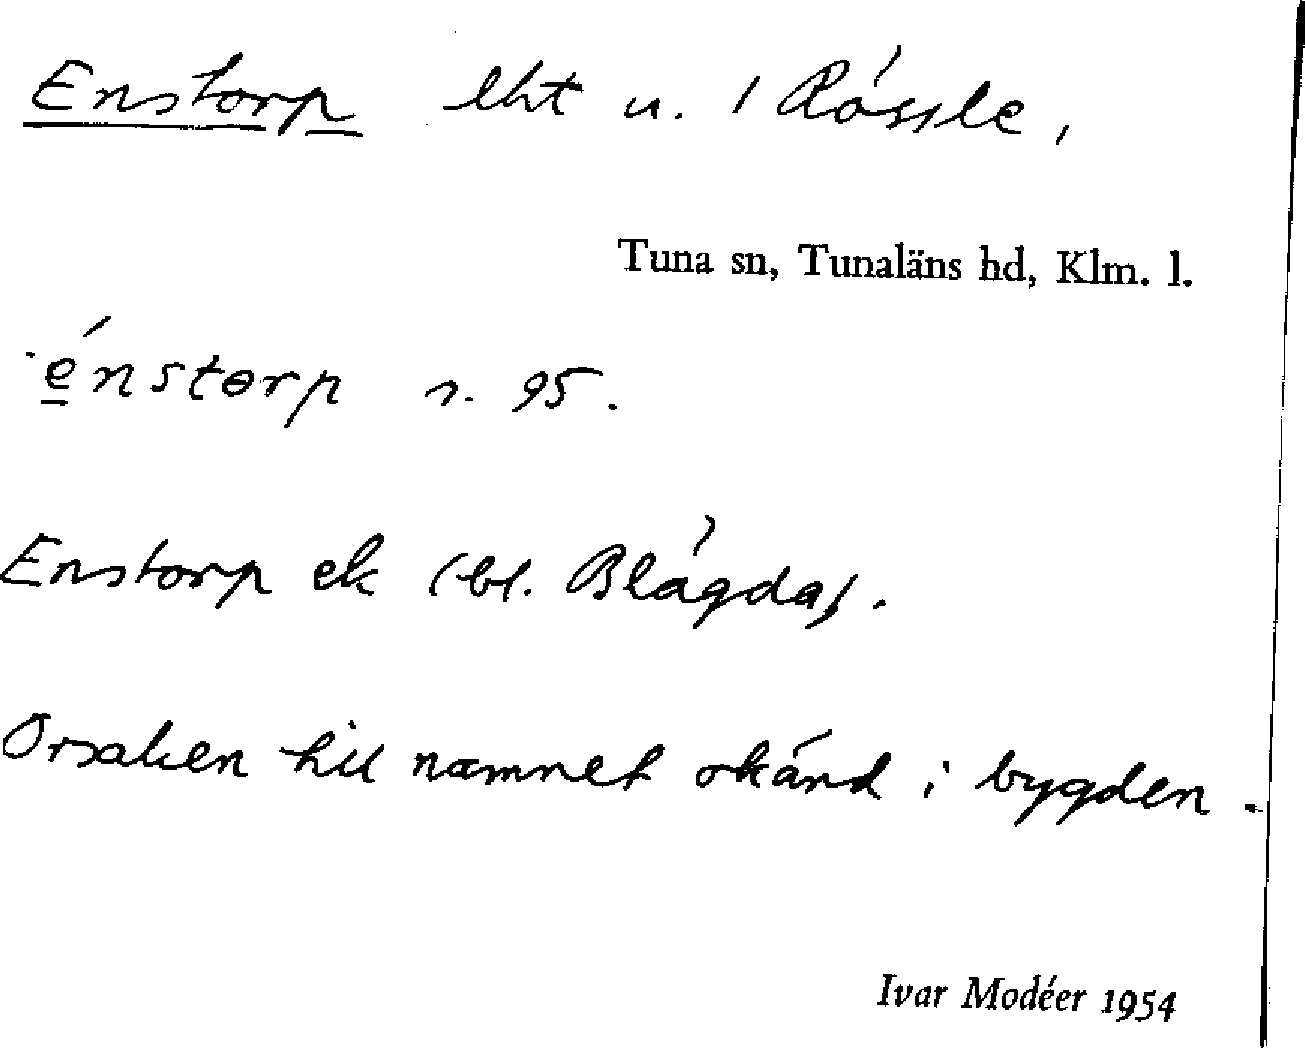 Enstorp lht u. 1 Rössle,
Tuna sn, Tunaläns hd, Klm. l.
énstorp s. 95.
Enstorp ek (bl. Blågda).
Orsaken till namnet okänd i bygden.
Ivar Modéer 1954